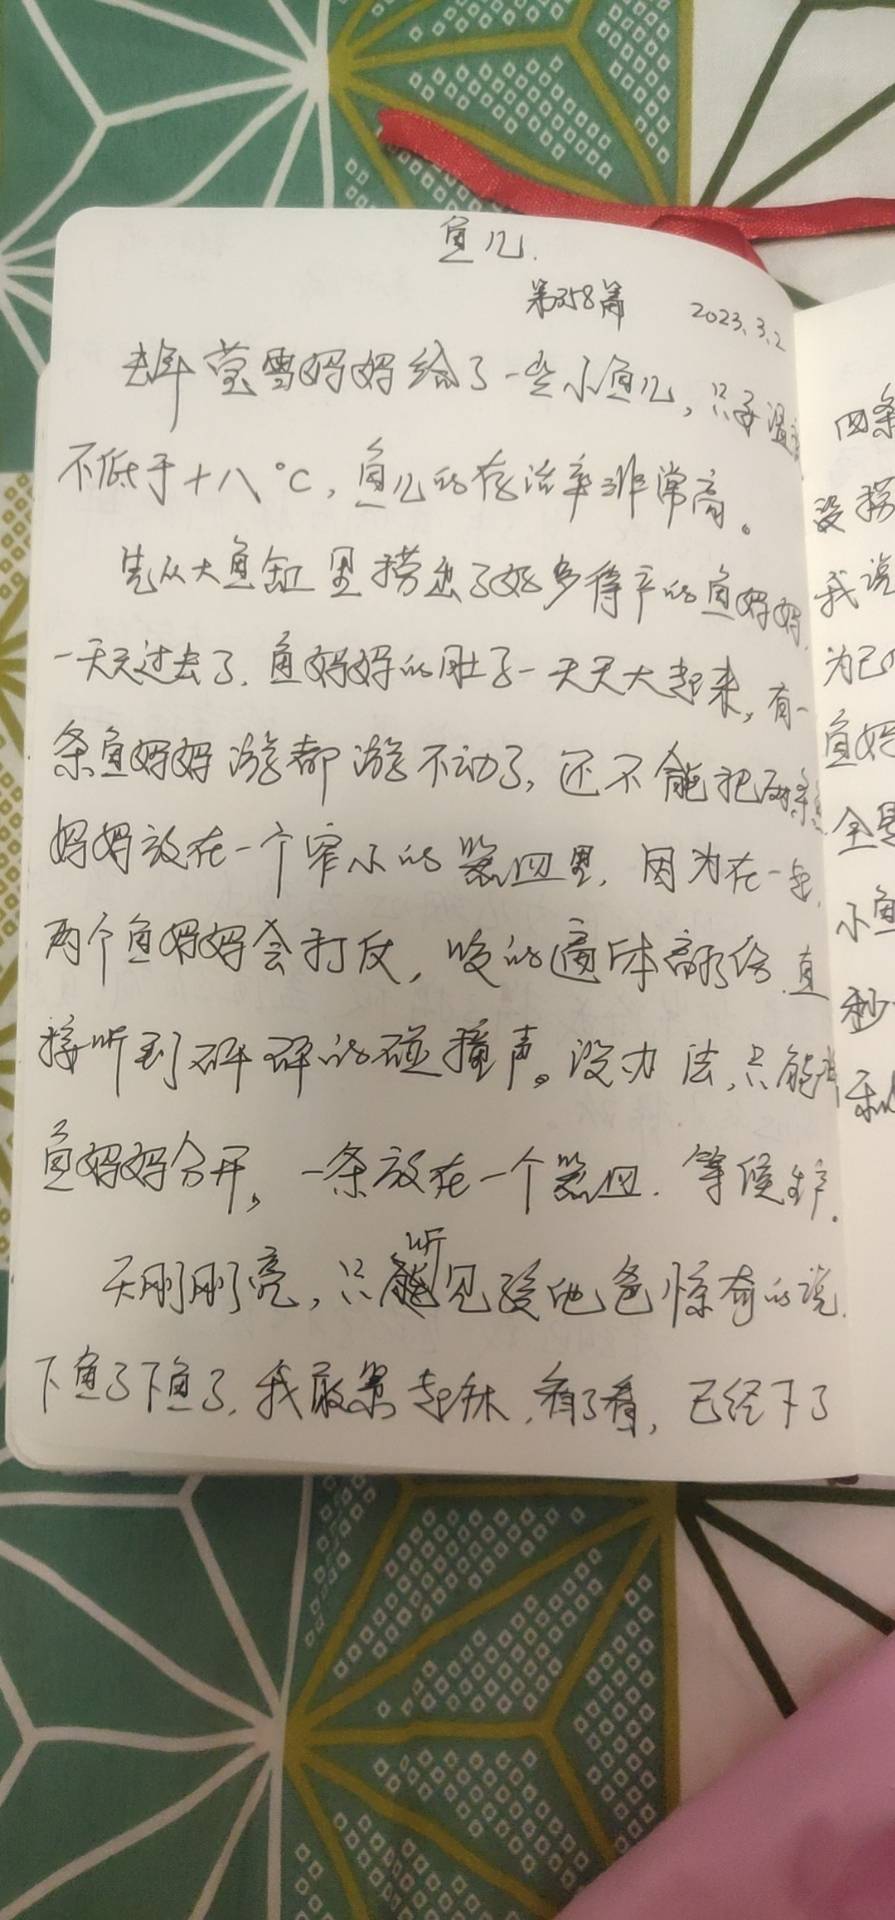 鱼儿.
第358篇 2023.3.2
去年莹雪妈妈给了一些小鱼儿,只要温
不低于十八°C,鱼儿的存活率非常高。
先从大鱼缸里捞出了好多待产的鱼妈妈,
一天天过去了,鱼妈妈的肚子一天天大起来,有一
条鱼妈妈游都游不动了,还不能把两条鱼
妈妈放在一个窄小的器皿里,因为在一起,
两个鱼妈妈会打仗,咬的遍体鳞伤,直
接听到砰砰的碰撞声。没办法,只能
鱼妈妈分开,一条放在一个器皿.等候生产.
天刚刚亮,只听见孩他爸惊奇的说,
下鱼了下鱼了,我敢紧起床,看了看,已经下了
四条
没捞
我说
为已
鱼妈
全是
小鱼
秒